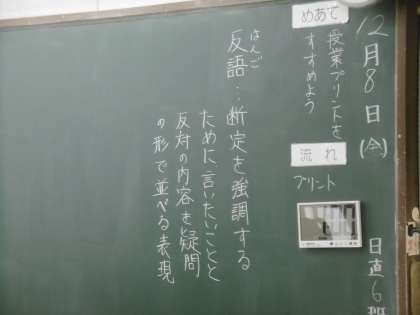 12月8日(金)
日直6班
めあて
授業プリントを
すすめよう
流れ
プリント
はんご
反語…断定を強調する
ために、言いたいことと
反対の内容を疑問
の形で並べる表現